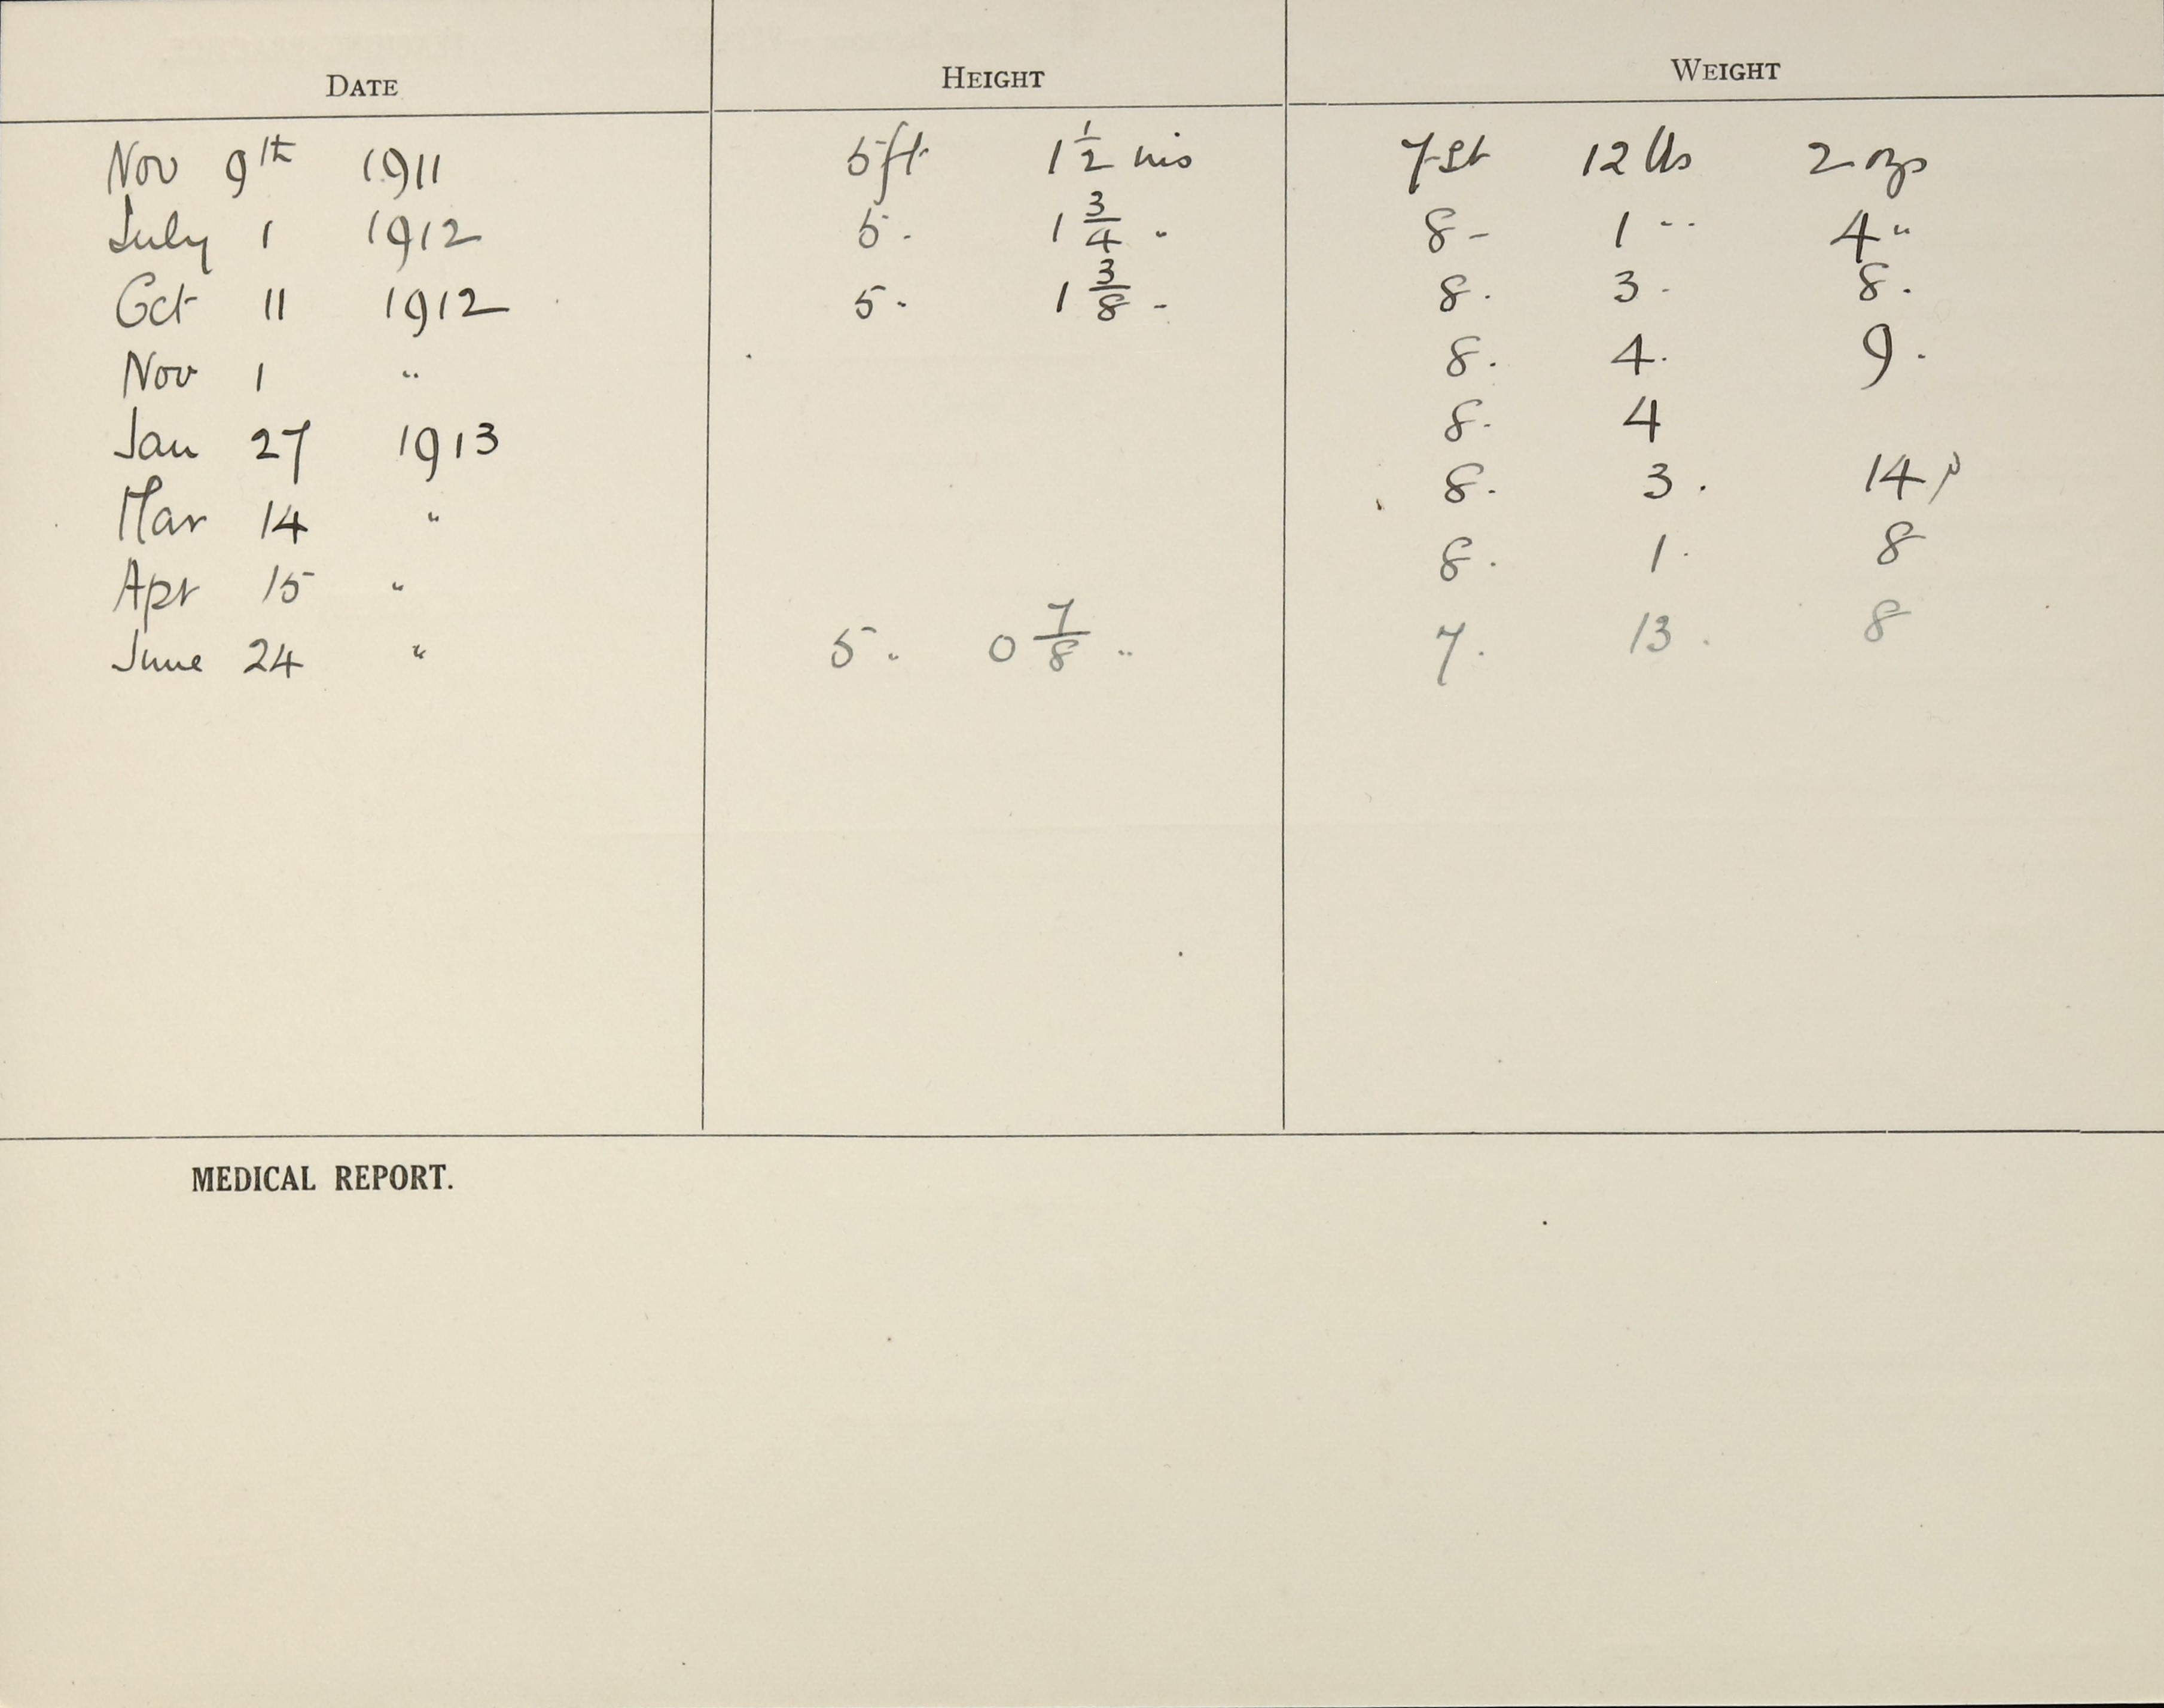 DATE HEIGHT WEIGHT
Nov 9th 1911 5ft 1 1/2 ins 7st 12 lbs 2 ozs
July 1 1912 5 . 1 3/4 " 8 - 1 " 4 "
Oct 11 1912 5 . 1 3/8 - 8 . 3 - 8 .
Nov 1 " 8 . 4 . 9 .
Jan 27 1913 8 . 4
Mar 14 " 8 . 3 . 14
Apr 15 " 8 . 1 . 8
June 24 " 5 " 0 7/8 " 7 . 13 . 8
MEDICAL REPORT.